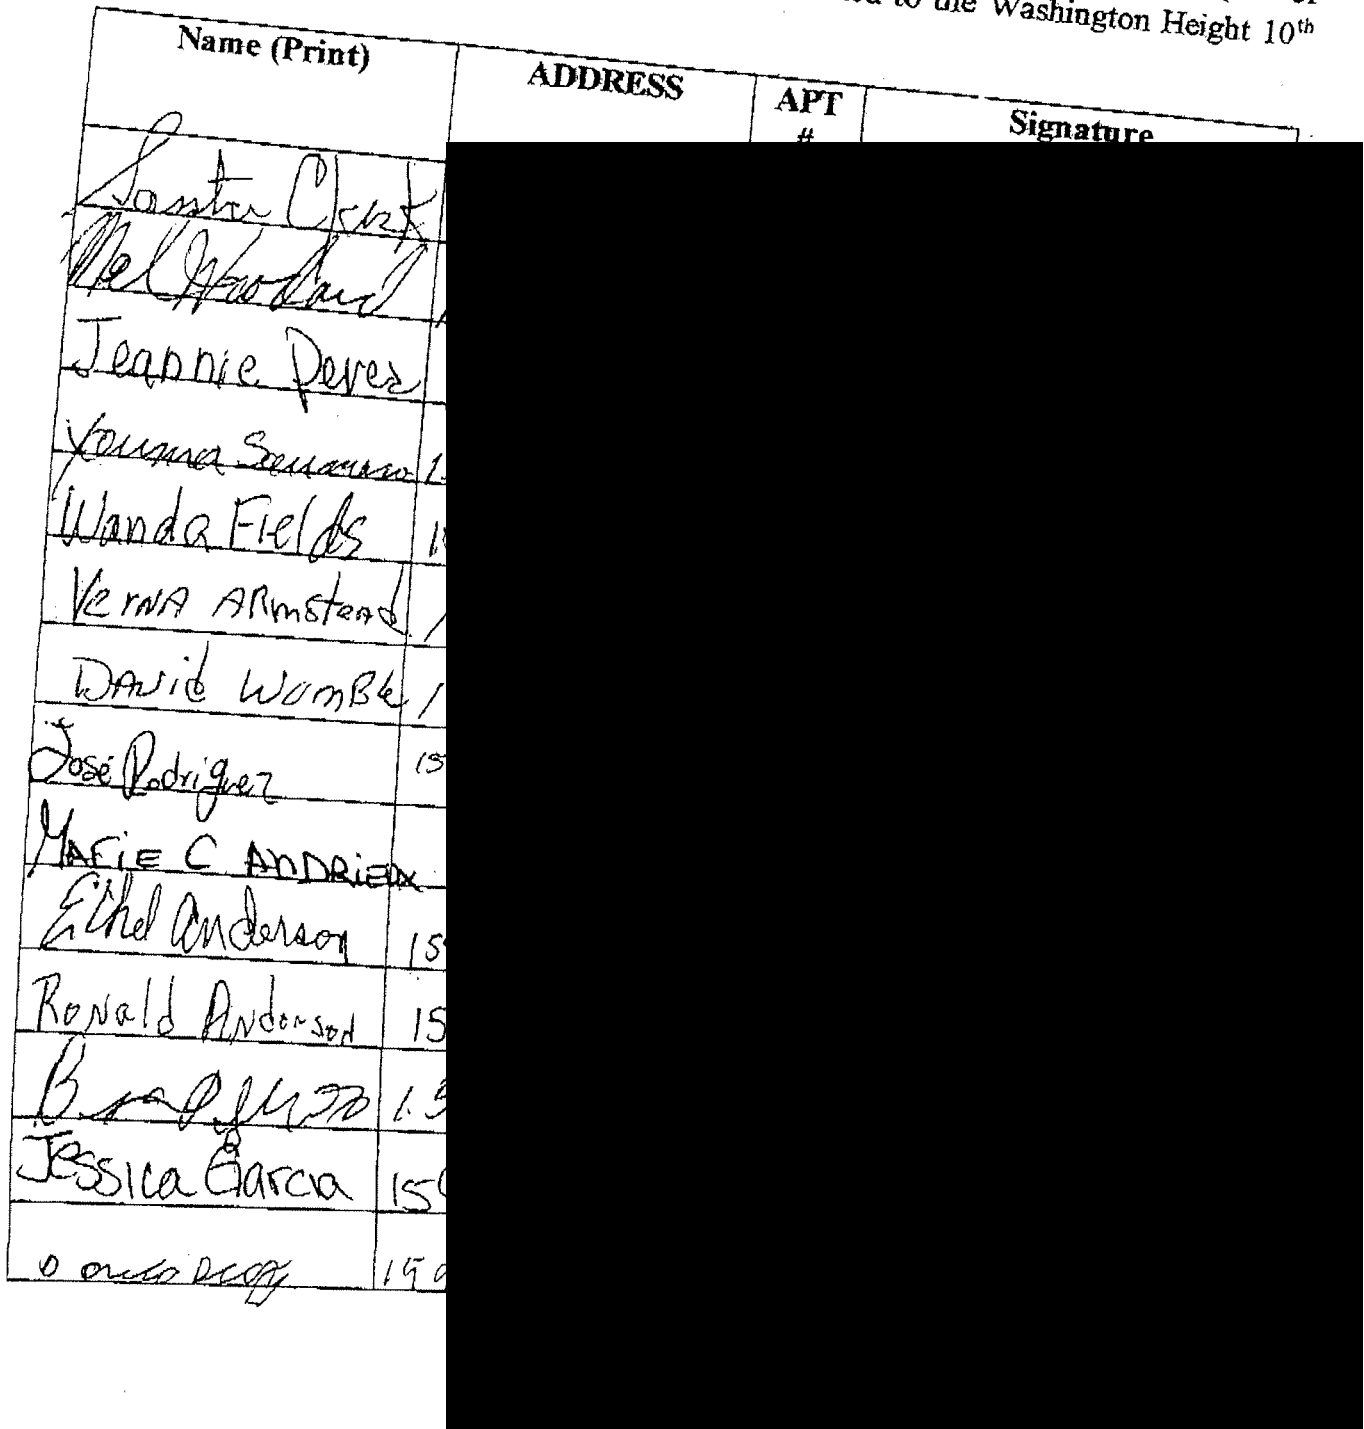 to the Washington Height 10th
Name (Print) ADDRESS APT # Signature
Santa Clark
Mel Woodard
Jeannie Perez
Youma
Wanda Fields
VernA ARmstead
DAvid WomBle
José Rodriguez 15
MAriE C ANDRiEUX
Ethel Anderson 15
RoNald ANderson 15
15
Jessica Garcia 150